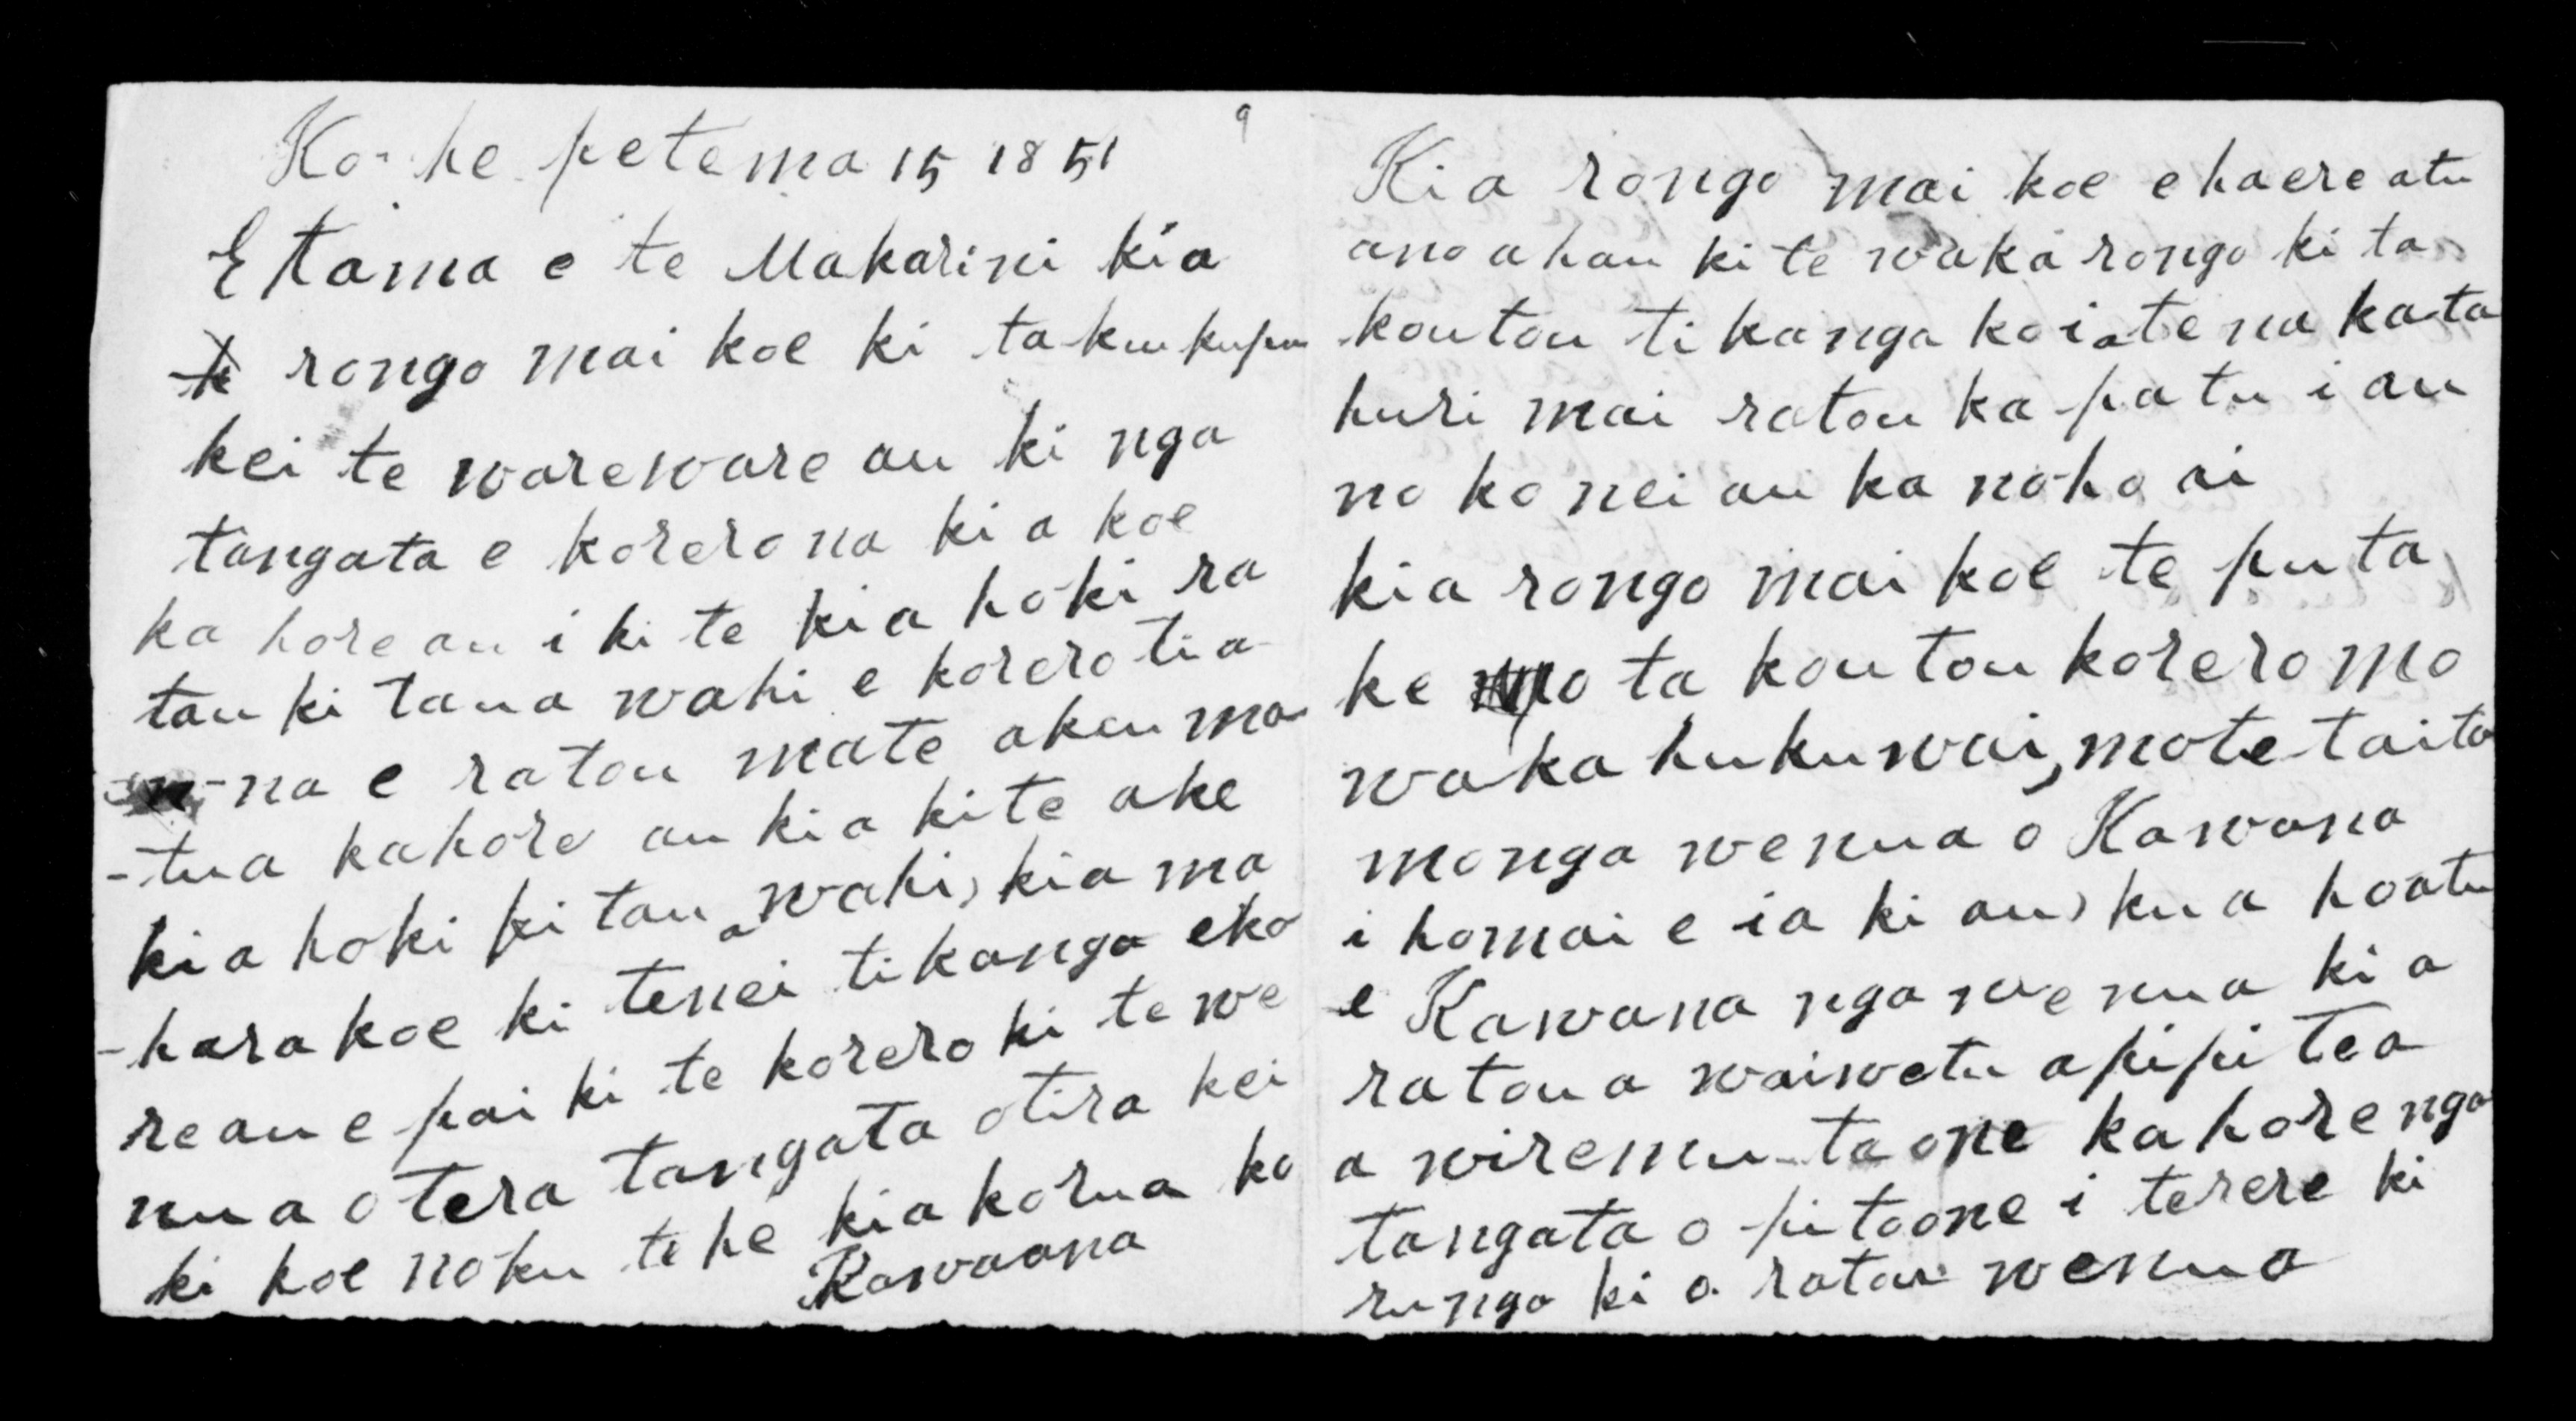 9
Ko he petema 15 1851
E tama e te Makarini kia
rongo mai koe ki taku kupu
kei te wareware au ki nga
tangata e korero na ki a koe
ka hore au i ki te kia hoki ra
tau ki taua wahi e korero tia
-na e ratou mate aku ma
-tua kahore au kia kite ake
kia hoki ki taua wahi, kia ma
-hara koe ki tenei tikanga eko
re au e pai ki te korero ki te we
nua o tera tangata otira kei
ki koe noku te he kia korua ko
Kawaana
Kia rongo mai koe e haere atu
ano ahau ki te waka rongo ki ta
koutou tikanga koia te na ka ta
huri mai ratou ka patu i au
no ko nei au ka noho ai
kia rongo mai koe te puta
ke mo ta koutou korero mo
waka hukuwai, mote taita
monga wenua o Kawana
i homai e ia ki au, kua hoatu
e Kawana nga wenua kia
ratou a waiwetu a pipi tea
a wiremu taone ka hore nga
tangata o pitoone i terere ki
runga ki a ratau wenua